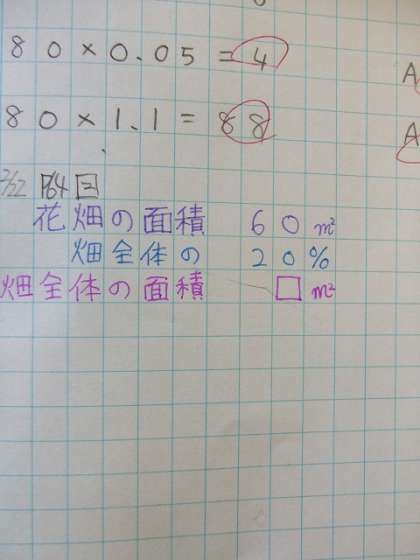 80×0.05=4
A
80×1.1=88
A
2/22 P64 三
花畑の面積 60m²
畑全体の 20%
畑全体の面積 □m²